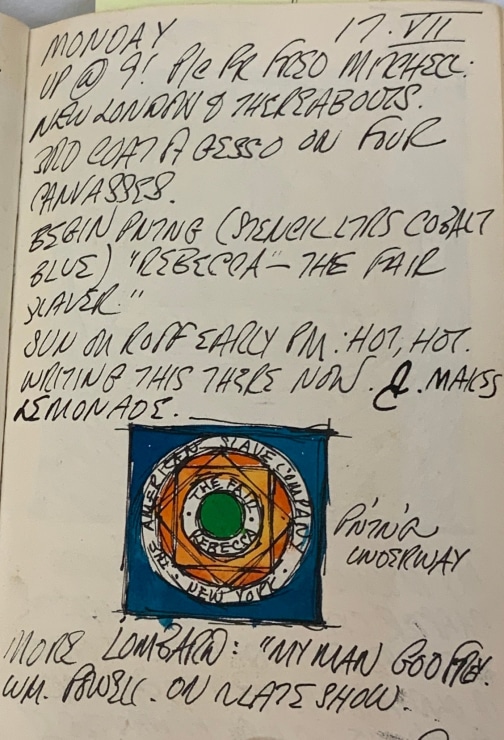 MONDAY 17.VII
UP @ 9! P/C FR FRED MITCHELL:
NEW LONDON & THEREABOUTS.
3RD COAT A GESSO ON FOUR
CANVASSES.
BEGIN PNTNG (STENCIL LTRS COBALT
BLUE) "REBECCA" – THE FAIR
SLAVER."
SUN ON ROOF EARLY PM: HOT, HOT.
WRITING THIS THERE NOW. MAKES
LEMONADE.
AMERICAN SLAVE COMPANY
THE FAIR
REBECCA
NEW YORK
PNTNG
UNDERWAY
MORE LOMBARD: "MY MAN GODFREY.
WM. POWELL. ON LATE SHOW.